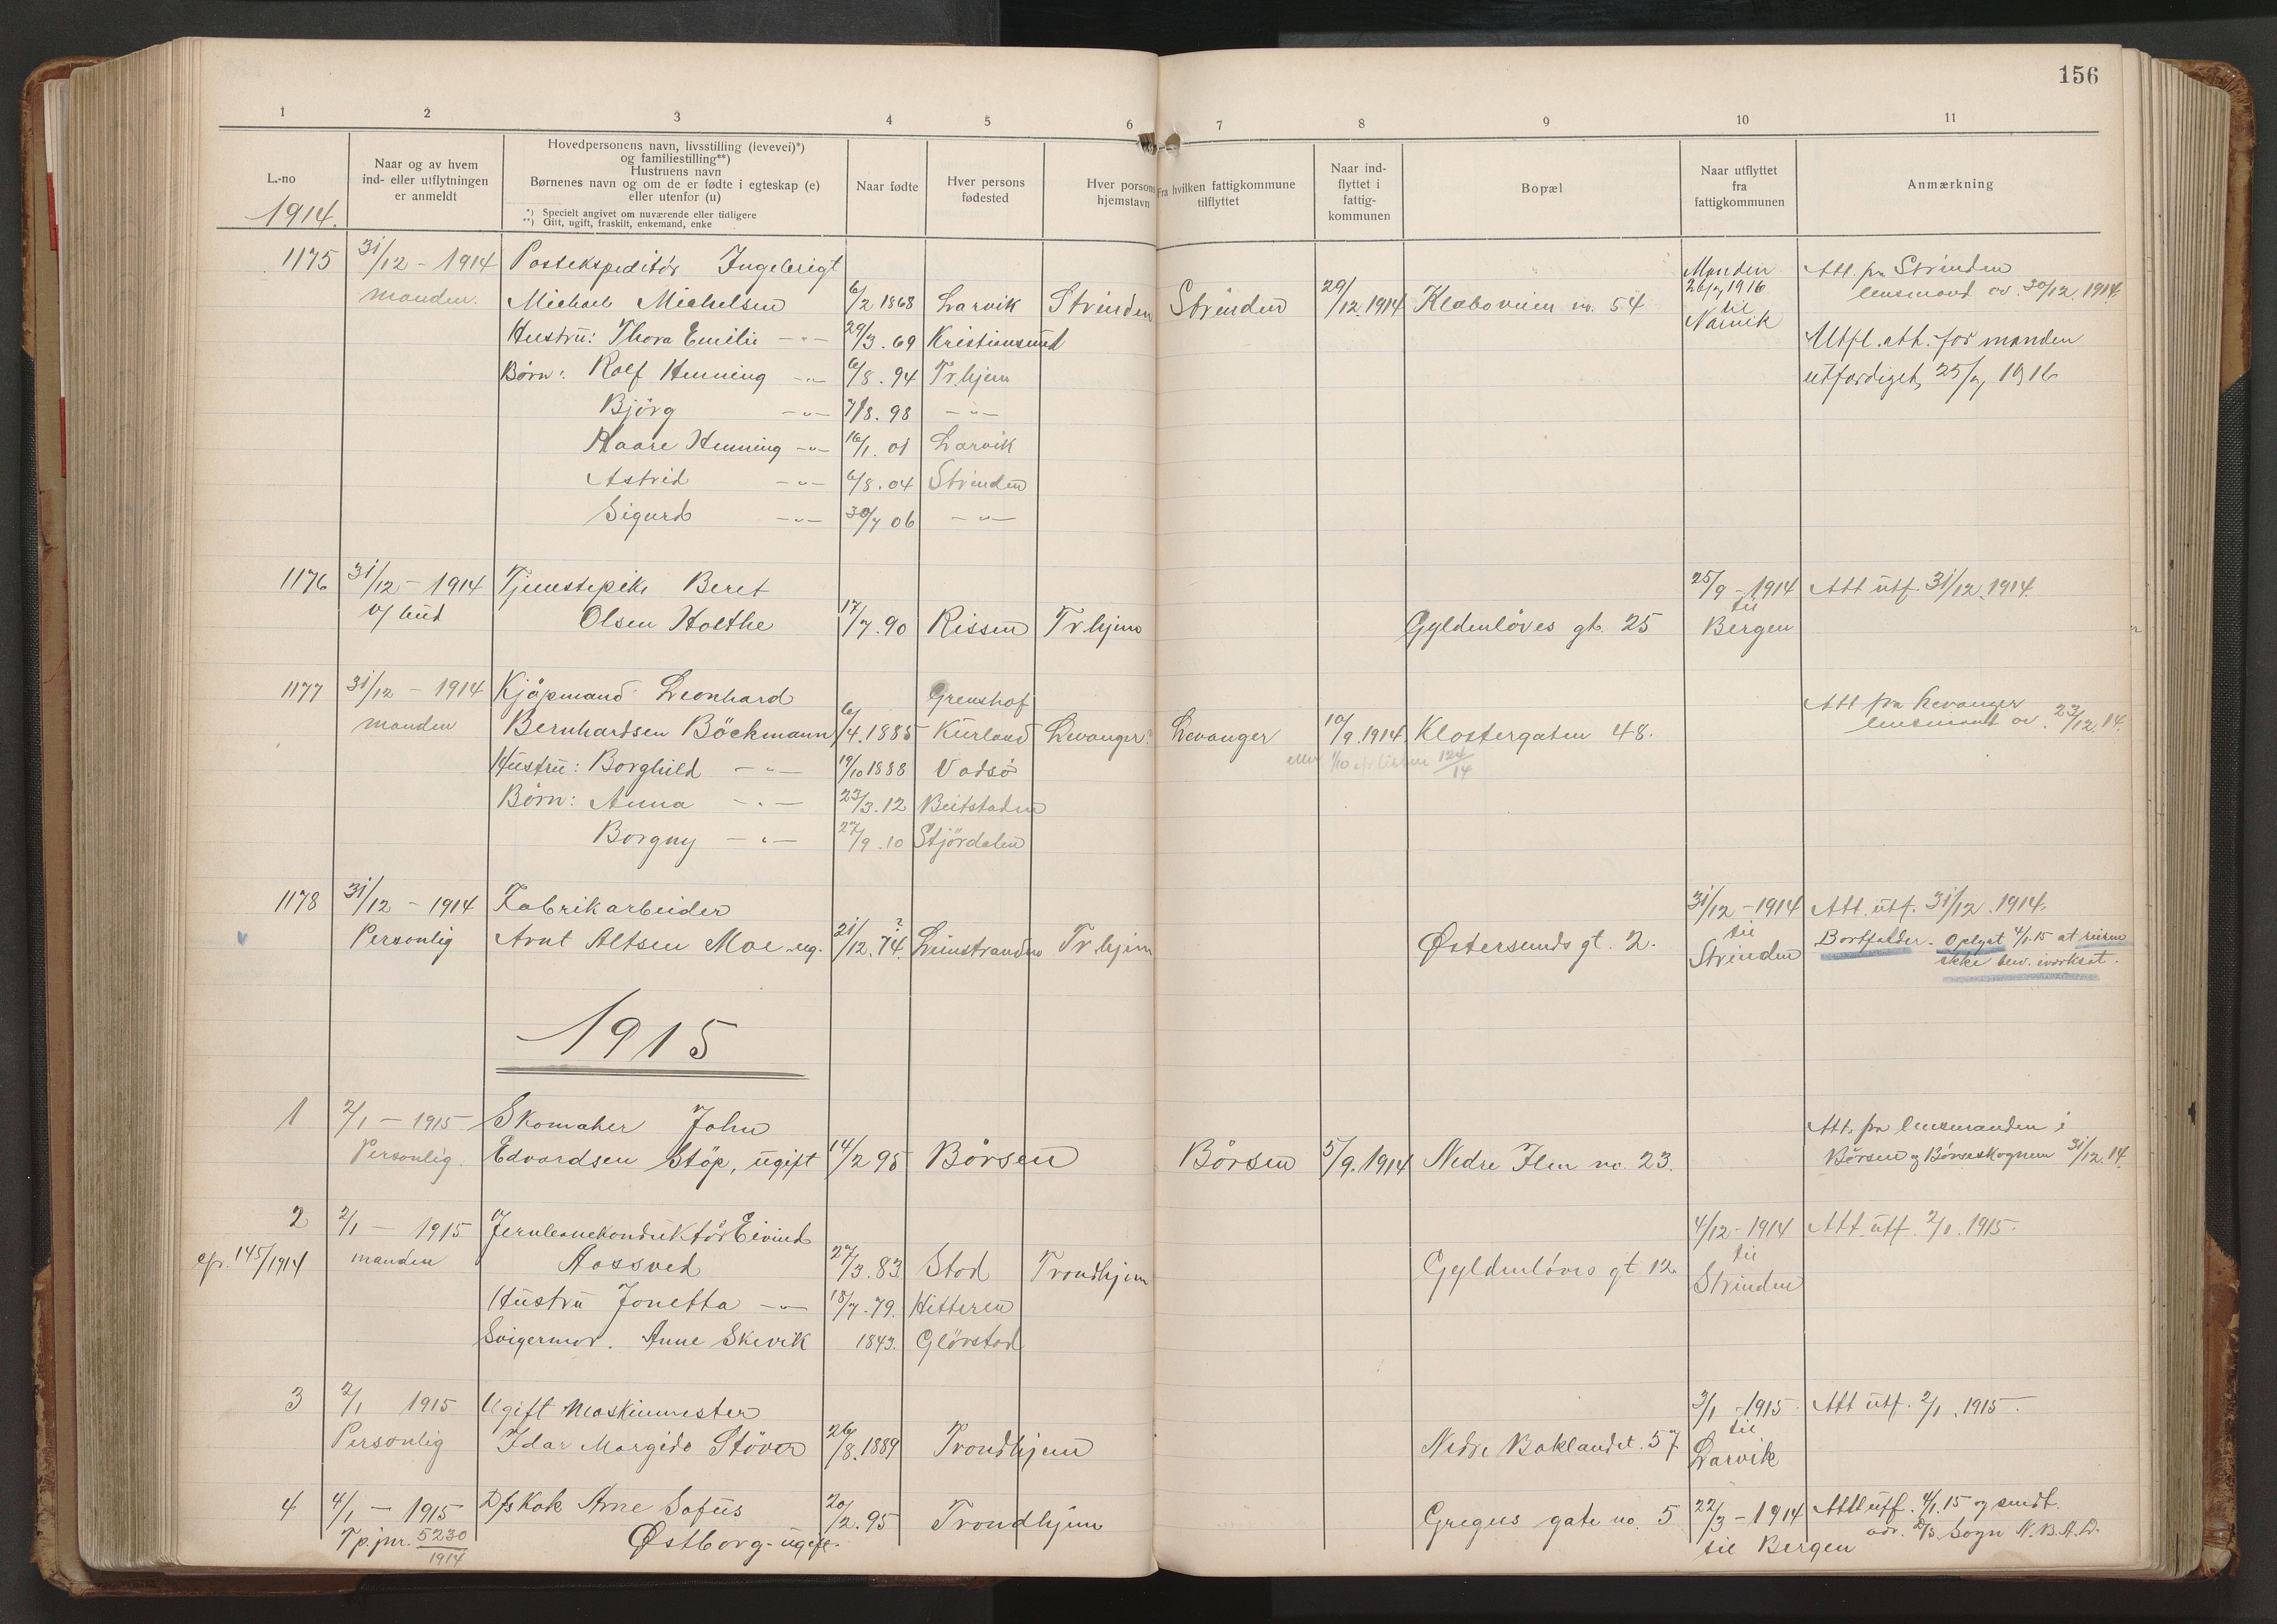 156
1 2 3 4 5 6 7 8 9 10 11
L.-no
Naar og av hvem
ind- eller utflytningen
er anmeldt
Hovedpersonens navn, livsstilling (levevei)*)
og familiestilling**)
Hustruens navn
Børnenes navn og om de er fødte i egteskap (e)
eller utenfor (u)
*) Specielt angivet om nuværende eller tidligere
**) Gift, ugift, fraskilt, enkemand, enke
Naar fødte
Hver persons
fødested
Hver persons
hjemstavn
Fra hvilken fattigkommune
tilflyttet
Naar ind-
flyttet i
fattig-
kommunen
Bopæl
Naar utflyttet
fra
fattigkommunen
Anmærkning
1914.
1175 31/12 - 1914 Postekspeditör Ingebrigt Manden Att. fra Strinden
manden. Michael Michelsen 6/2 1868 Larvik Strinden Strinden 29/12.1914 Klæboveien no. 54 26/7 1916 lensmand av 30/12.1914.
til
Hustru: Thora Emilie -"- 29/3.69 Kristiansund Narvik Utfl. att. for manden
Børn: Rolf Henning -"- 6/8.94 Tr.hjem utfærdiget 25/7 1916
Bjórg -"- 7/8.98 -"-
Kaare Henning -"- 16/1.01 Larvik
Astrid -"- 6/8.04 Strinden
Sigurd -"- 30/7 06 -"-
1176 31/12 - 1914 Tjenstepike Beret 25/9 - 1914 Att utf. 31/12.1914.
v/ bud Olsen Holthe 17/7.90 Rissen Tr.hjem Gyldenlöves gt. 25 til
Bergen
1177 31/12 - 1914 Kjöpmand Leonhard Grenshof Att fra Levanger
manden Bernhardsen Böckmann 6/4.1885 Kurland Levanger? Levanger 10/9.1914. Klostergaten 48. lensmand av 23/12.14.
eller 1/10 124/14
Hustru: Borghild -"- 19/10 1888 Vadsö
Børn: Anna -"- 23/3.12 Beitstaden
Borgny -"- 27/9.10 Stjördalen
1178 31/12 - 1914 Fabrikarbeider 31/12 - 1914 Att. utf. 31/12.1914.
Personlig Arnt Altsen Moe - ug. 21/12.74.? Leinstranden Tr.hjem Østersunds gt. 2. til
Strinden Bortfalder. Oplyst 4/1.15 at reisen
ikke blev iverksat.
1915
1 2/1 - 1915 Skomaker John Att. fra lensmanden i
Personlig. Edvardsen Stöp, ugift 14/2 95 Börsen Börsen 5/9.1914 Nedre Ilen no. 23. Börsen og Börseskognen 31/12.14.
2 2/1 - 1915 Jernbanekonduktör Eivind 4/12 - 1914 Att utf. 2/1.1915.
cfr. 145/1914 manden Aassved 27/3.83 Stod Trondhjem Gyldenlöves gt 12. til
Strinden
Hustru Jonetta -"- 18/7.79. Hitteren
Svigermor. Anne Skevik 1843.
3 2/1 1915 Ugift Maskinmester 3/1 - 1915. Att utf. 2/1.1915.
Personlig Idar Margido Stöver 26/8.1889 Trondhjem Nedre Baklandet. 57 til
Larvik
4 4/1 - 1915 D/s Kok Arne Sofus 20/2.95 Trondhjem Gregus gate no. 5 22/3 - 1914 Att utf. 4/1.15 og sendt.
T.p.jnr. 5230/1914 Østborg - ugift. til Bergen adr. D/S Sogn N.B.A.D.